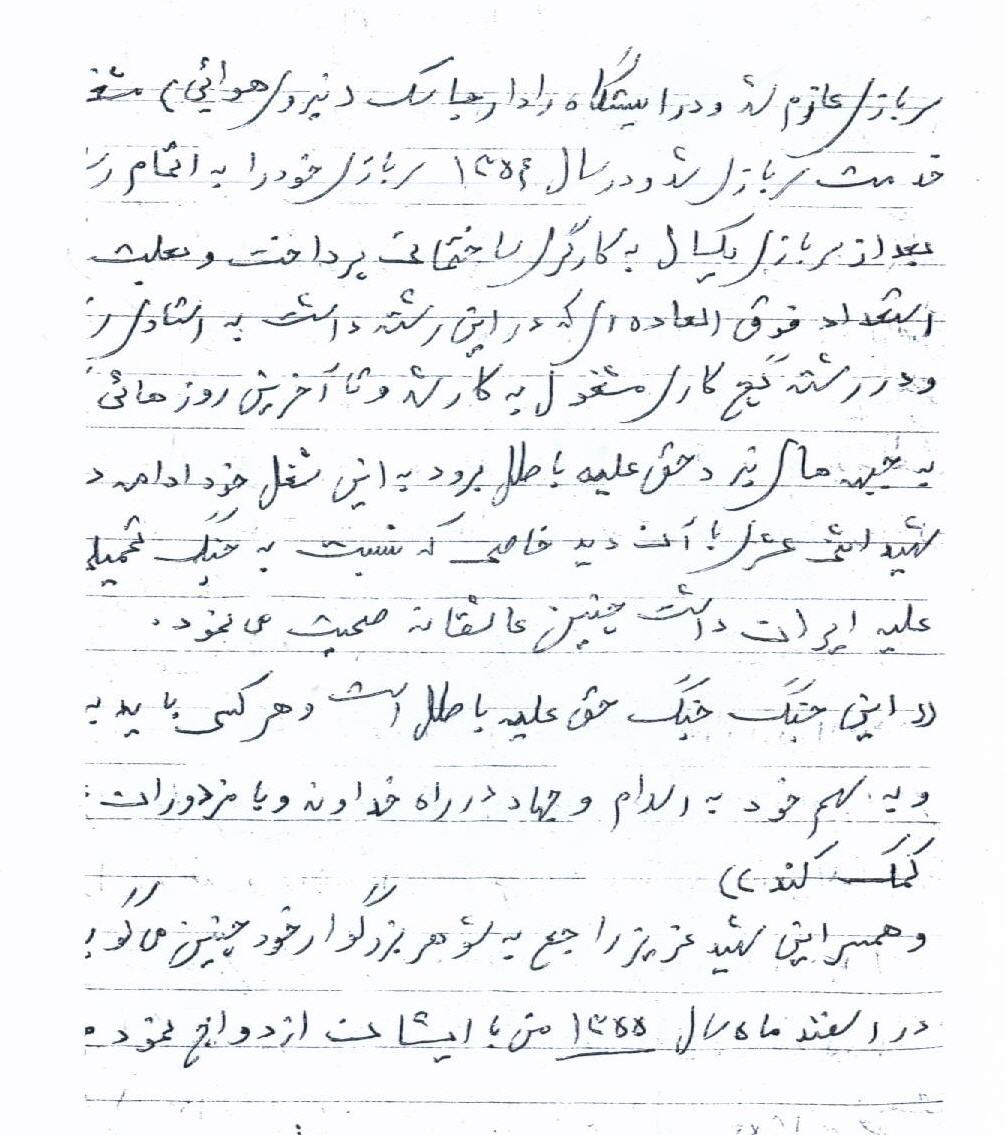 سربازی عازم شد و در ایستگاه رادار جاسک (نیروی هوائی) مشغ
خدمت سربازی شد و در سال ۱۳۵۴ سربازی خود را به اتمام رس
بعد از سربازی یکسال به کارگری ساختمانی پرداخت و بعلت
استعداد فوق العاده ای که در این رشته داشت به استادی ر
و در رشته گچ کاری مشغول به کار شد و تا آخرین روزهائی
به جبهه های نبرد حق علیه باطل برود به این شغل خود ادامه د
شهید اثنی عشری با آن دید خاصی که نسبت به جنگ تحمیلی
علیه ایران داشت چنین عاشقانه صحبت می نمود.
((این جنگ جنگ حق علیه باطل است و هر کسی باید به
و به سهم خود به اسلام و جهاد در راه خداوند و با مزدوران
کمک کند))
و همسر این شهید عزیز راجع به شوهر بزرگوار خود چنین می گو
در اسفند ماه سال ۱۳۵۵ من با ایشان ازدواج نمود